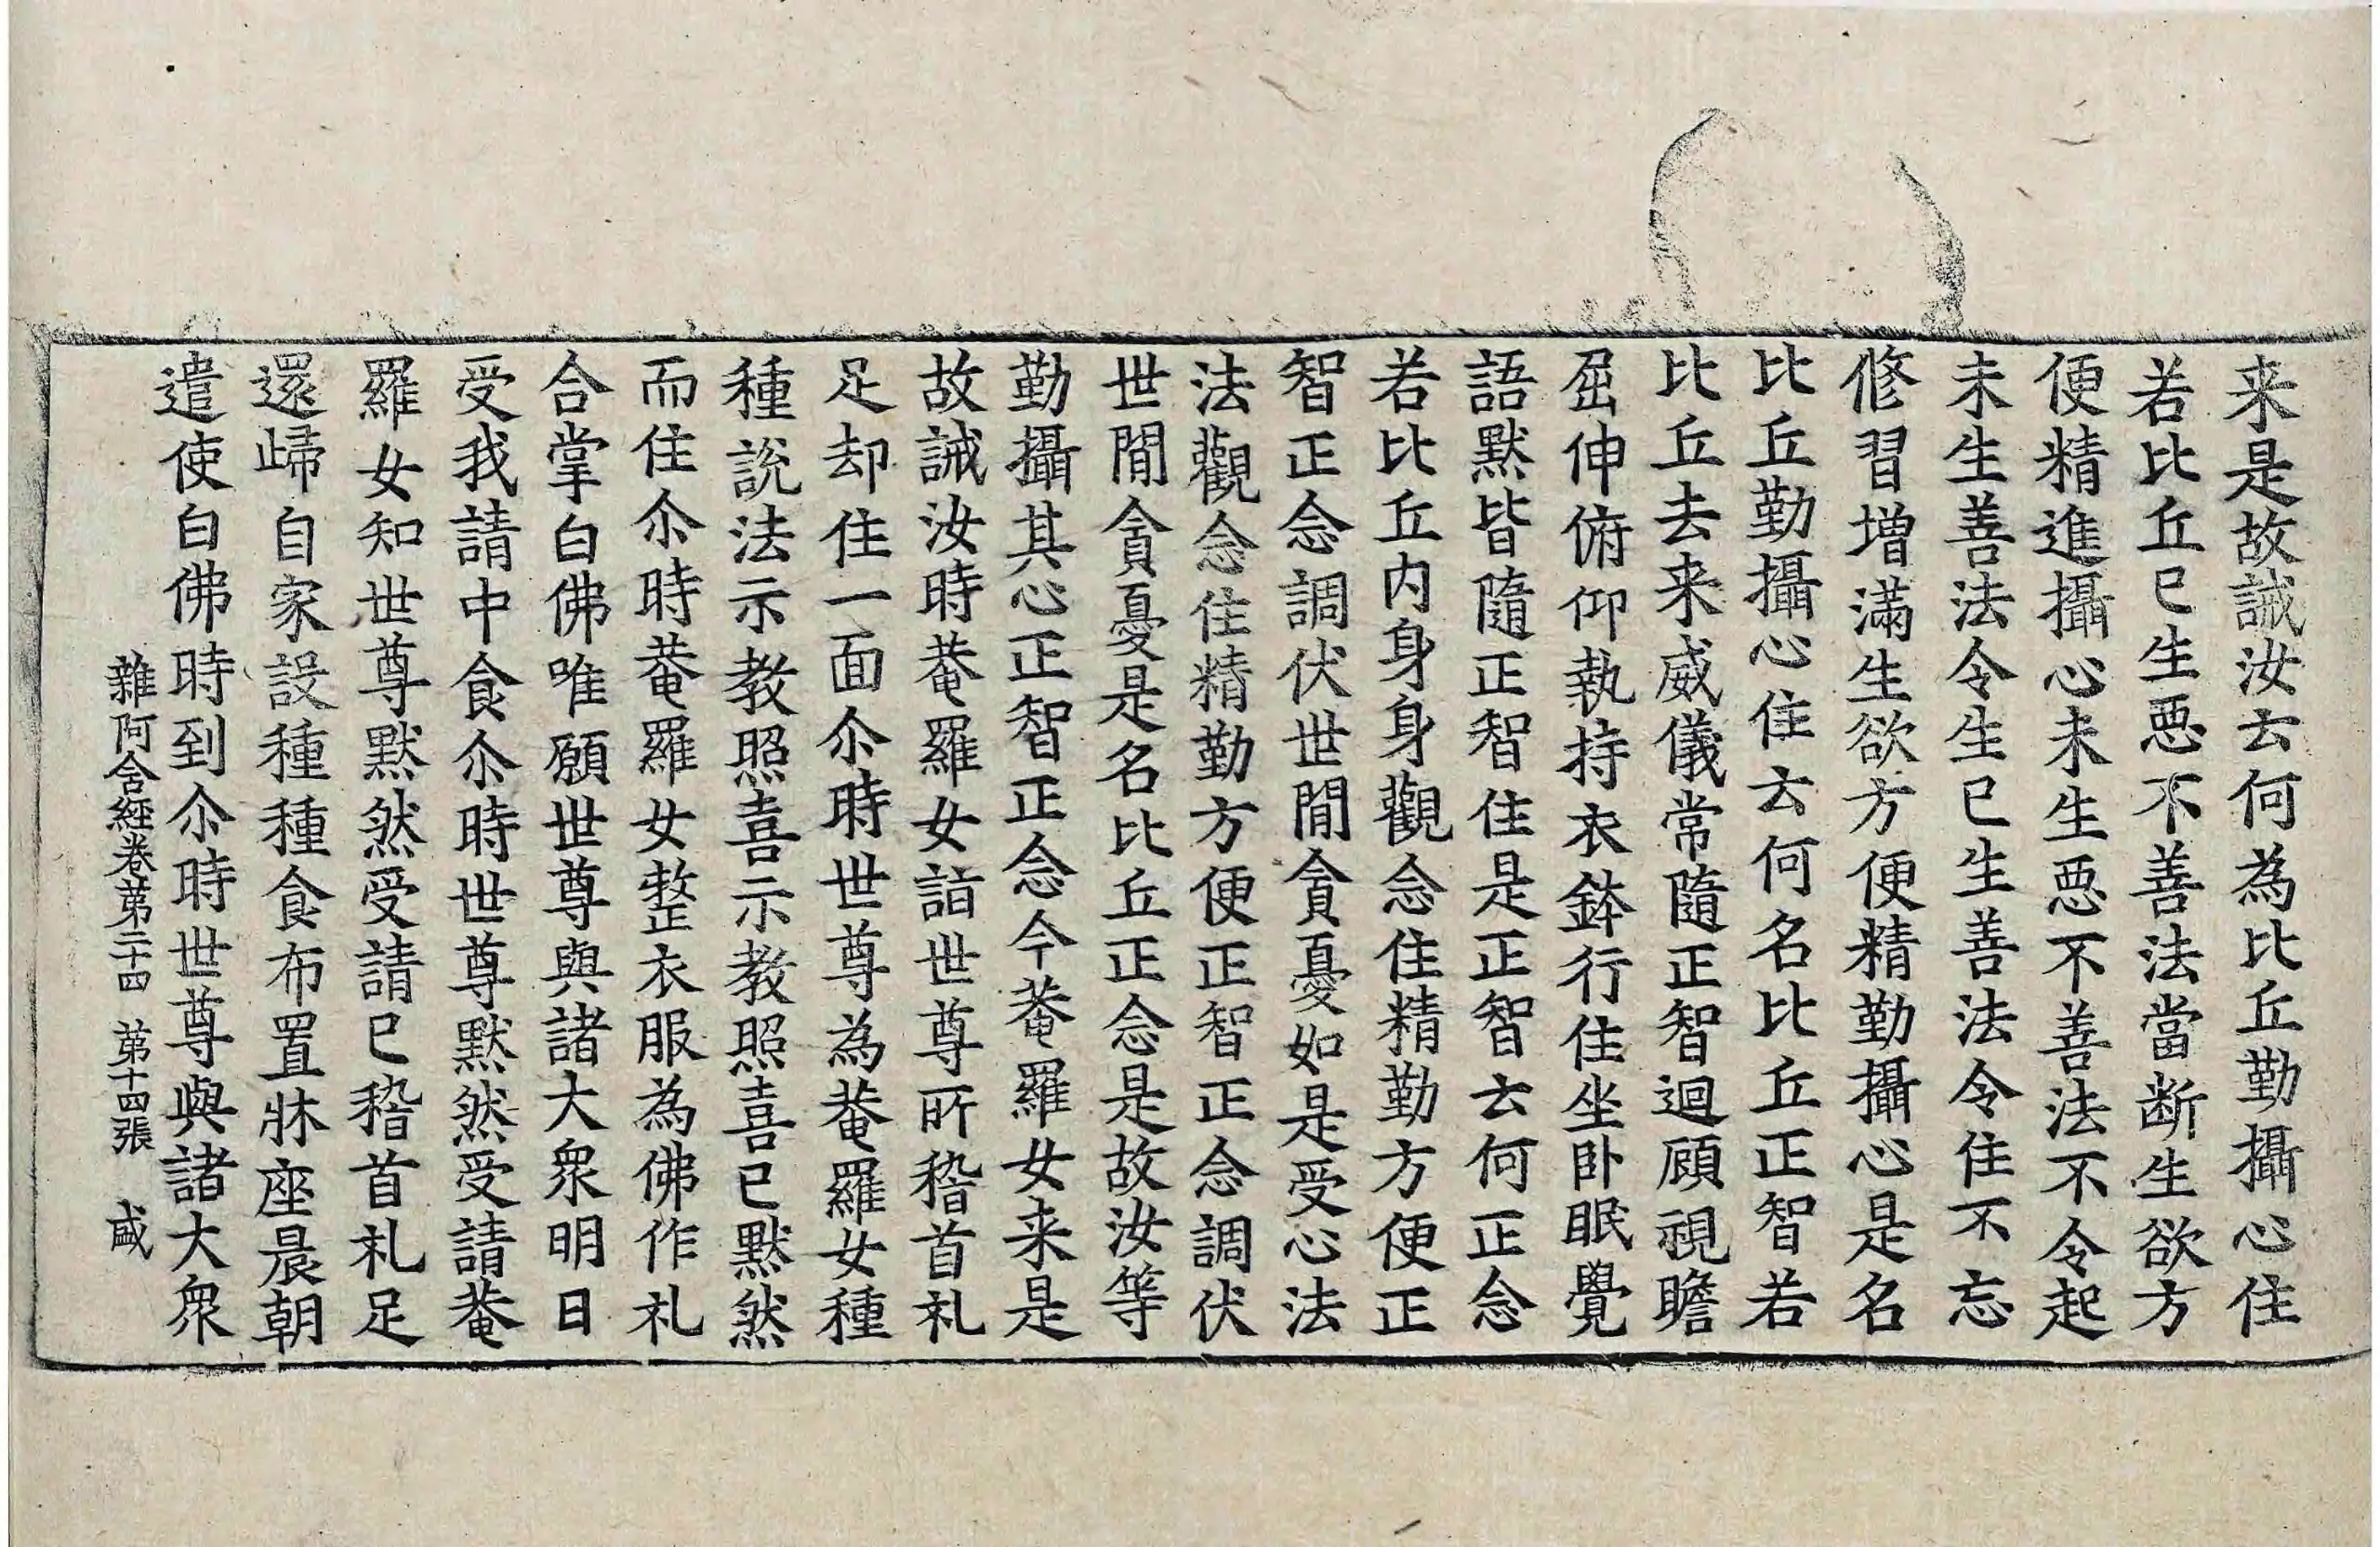 来是故誡汝云何為比丘勤攝心住
若比丘已生惡不善法當断生欲方
便精進攝心未生惡不善法不令起
未生善法令生已生善法令住不忘
修習增滿生欲方便精勤攝心是名
比丘勤攝心住云何名比丘正智若
比丘去来威儀常隨正智迴顧視瞻
屈伸俯仰執持衣鉢行住坐卧眠覺
語默皆隨正智住是正智云何正念
若比丘内身身觀念住精勤方便正
智正念調伏世間貪憂如是受心法
法觀念住精勤方便正智正念調伏
世間貪憂是名比丘正念是故汝等
勤攝其心正智正念今菴羅女来是
故誡汝時菴羅女詣世尊所稽首礼
足却住一面尒時世尊為菴羅女種
種說法示教照喜示教照喜已默然
而住尒時菴羅女整衣服為佛作礼
合掌白佛唯願世尊與諸大衆明日
受我請中食尒時世尊默然受請菴
羅女知世尊默然受請已稽首礼足
還歸自家設種種食布置牀座晨朝
遣使白佛時到尒時世尊與諸大衆
雜阿含經卷第二十四 第十四張 盛